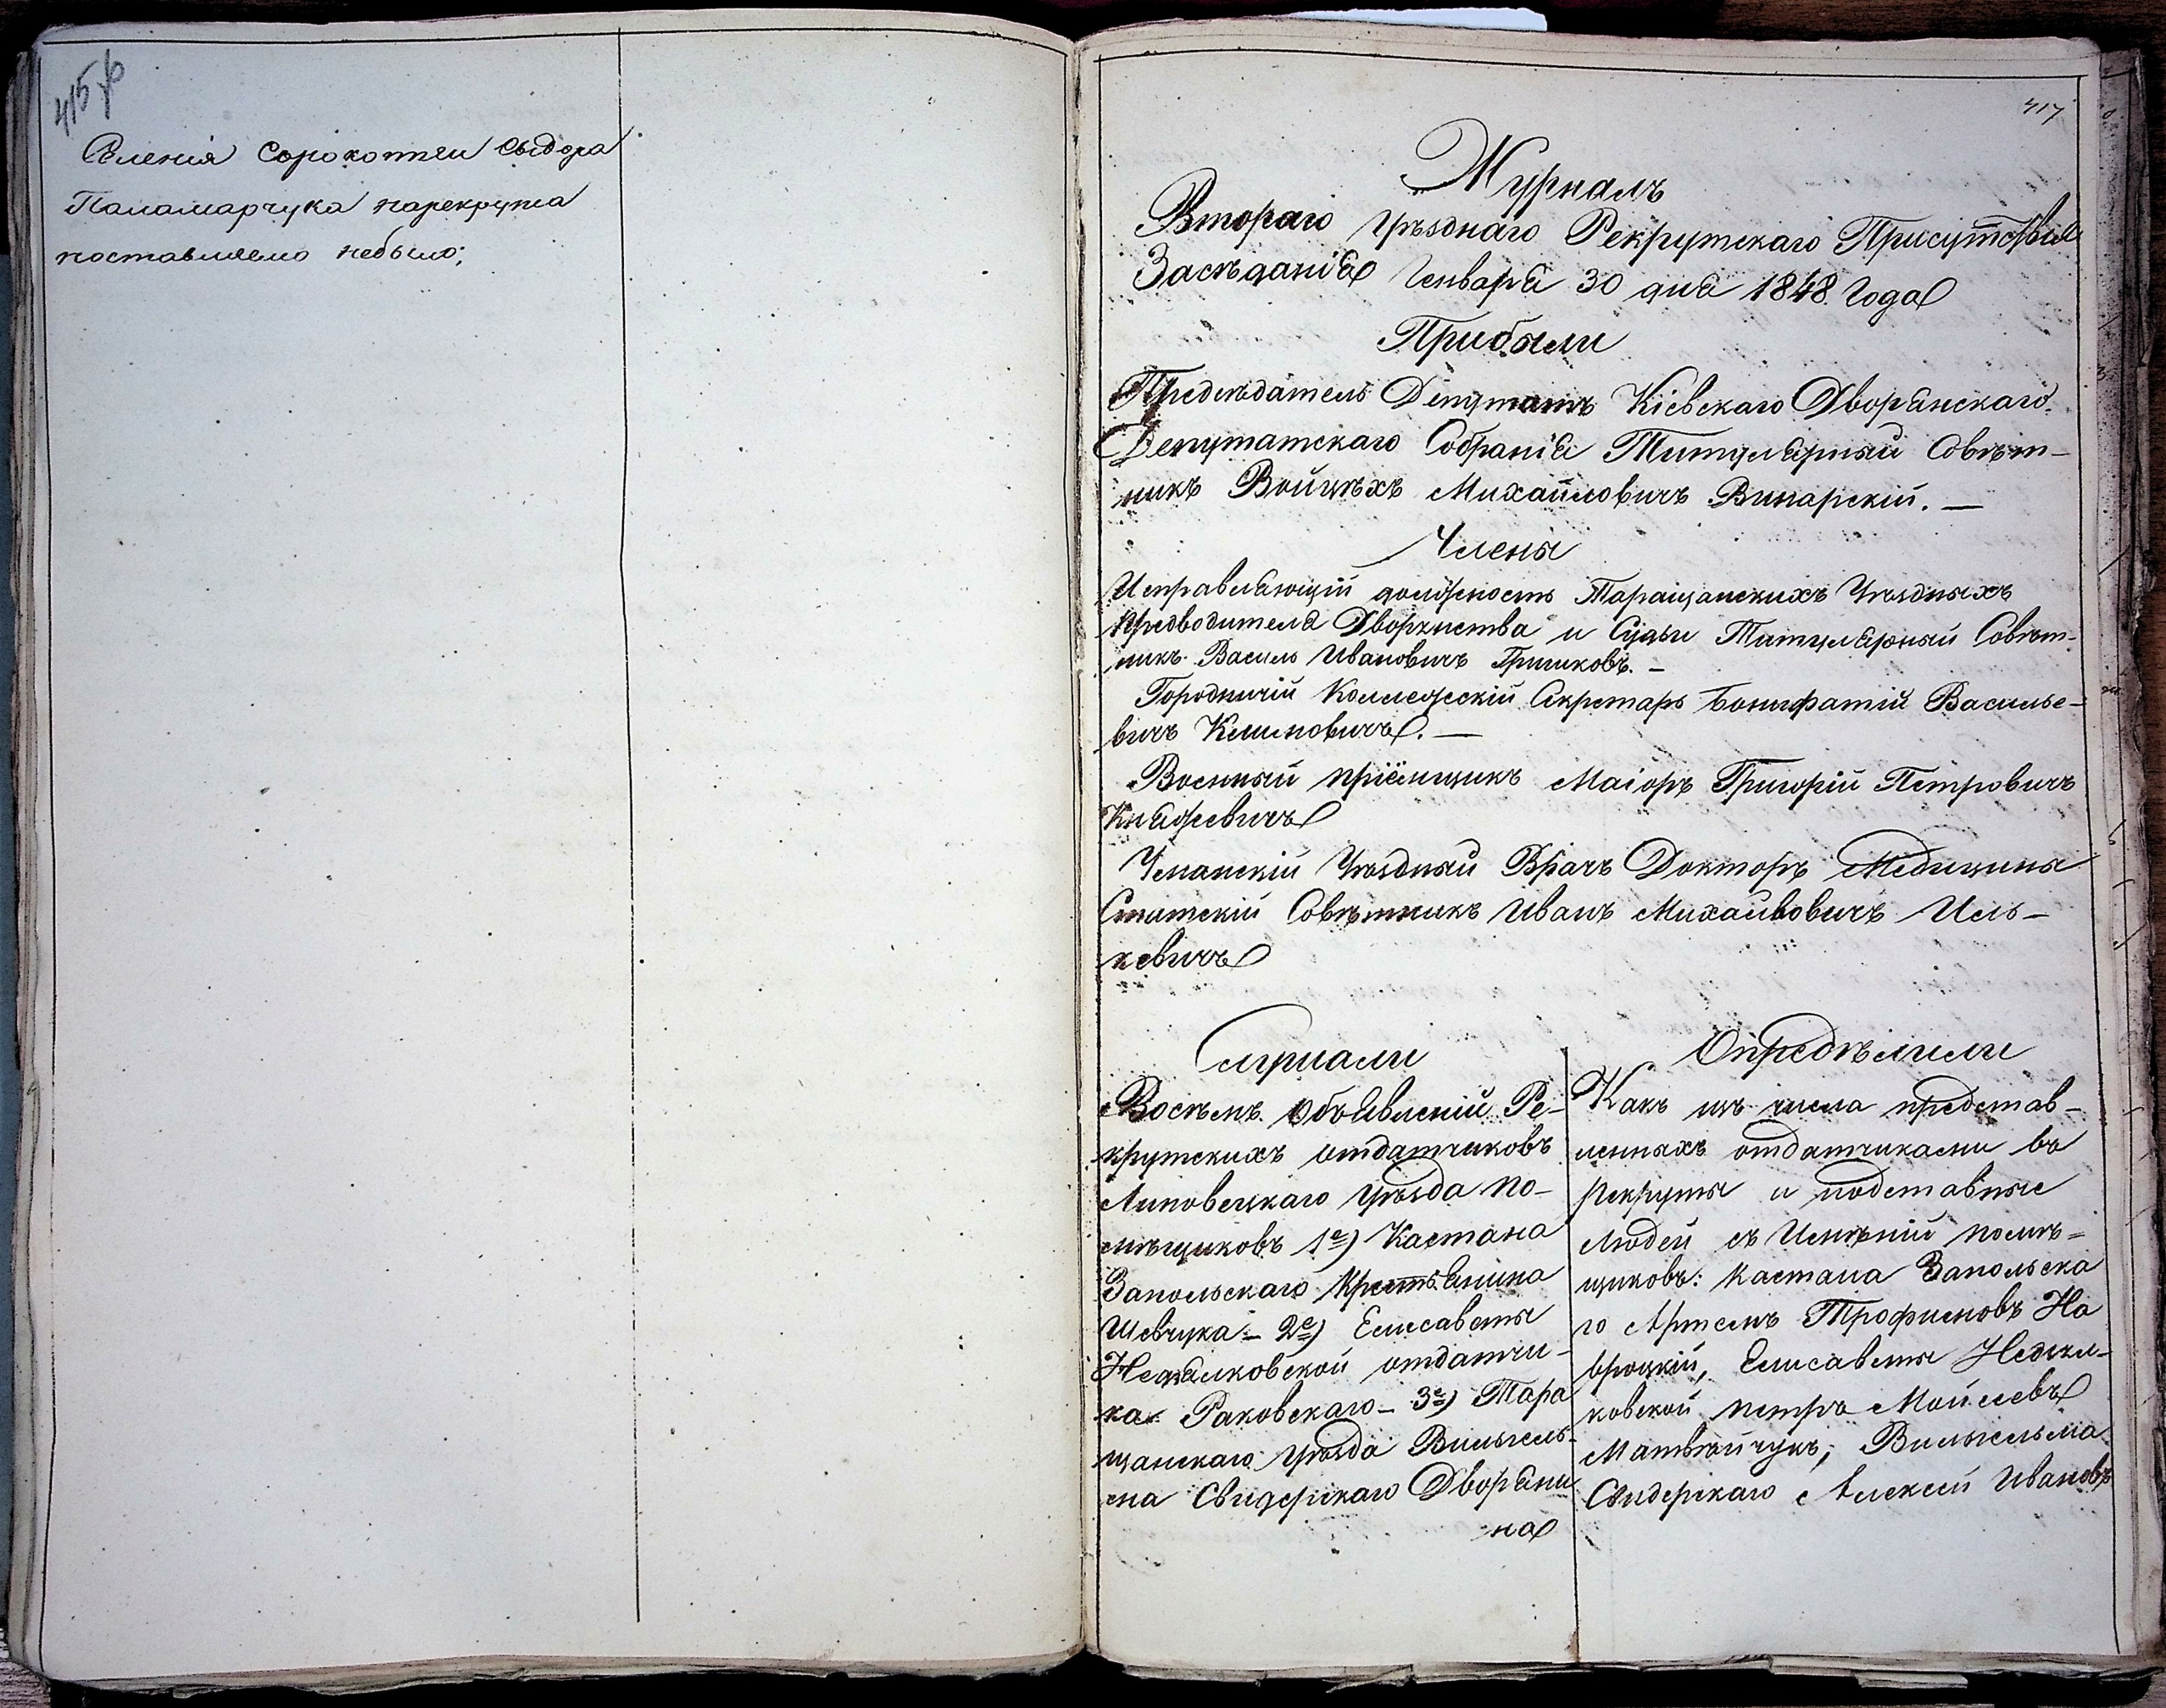 селенія Сорокотяги Сыдора
Паламарчука нарекрута
поставляемо небыло;
417
Журналъ
Втораго Уѣзднаго Рекрутскаго Присутствія
Засѣданія Генваря 30 дня 1848 Года
Прибыли
Предсѣдатель Депутатъ Кіевскаго Дворянскаго
Депутатскаго Собранія Титулярный Совѣт-
никъ Войцѣхъ Михайловичъ Винарскій. —
Члены
Исправляющій должность Таращанскихъ Уѣздныхъ
Предводителя Дворянства и Судьи Титулярный Совѣт-
никъ Василь Ивановичъ Гришковъ. —
Городничій Коллежскій Секретарь Бонифатій Василье-
вичъ Климовичъ. —
Военный пріёмщикъ Маіоръ Григорій Петровичъ
Княжевичъ
Уманскій Уѣздный Врачъ Докторъ Медицины
Статскій Совѣтникъ Иванъ Михайловичъ Иль-
кевичъ
Слушали
Восѣмъ Объявленій Ре-
крутскихъ отдатчиковъ
Липовецкаго Уѣзда по-
мѣщиковъ 1е) Каетана
Запольскаго Крестьянина
Шевчука — 2е) Елисаветы
Недзялковской отдатчи-
ка Раковскаго — 3е) Тара
щанскаго уѣзда Вильгель-
ма Свидерскаго Дворяни
на
Опредѣлили
Какъ изъ числа представ-
ленныхъ отдатчиками въ
рекруты и подставные
людей съ Имѣній помѣ-
щиковъ: Каетана Запольска
го Артемъ Трофимовъ На
вроцкій, Елисаветы Недзял-
ковской Петръ Мойсеевъ
Матвѣйчукъ, Вильгельма
Свидерскаго Алексей Ивановъ